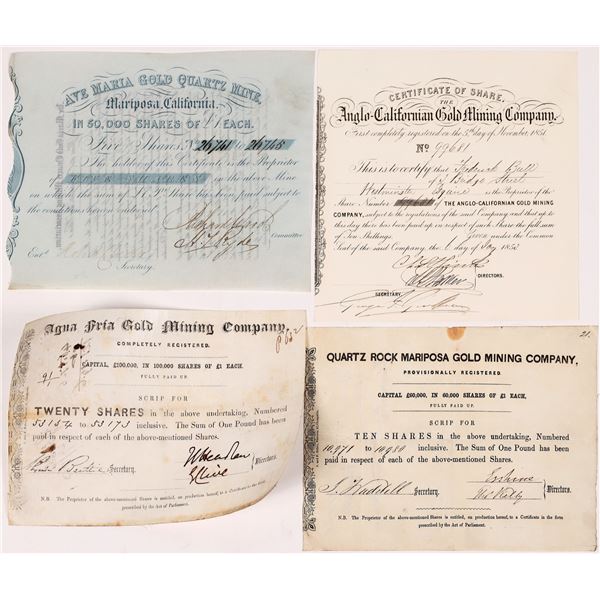 AVE MARIA GOLD QUARTZ MINE.
Mariposa, California.
IN 50,000 SHARES OF £1 EACH.
Five Shares Nº 26761 to 26765
The holder of this Certificate is the Proprietor
of in the above Mine
on which the sum of has been paid subject to the
conditions
Committee
Entd.
Secretary.
CERTIFICATE OF SHARE.
THE
Anglo-Californian Gold Mining Company.
First completely registered on the 5th day of November, 1851.
No 99681
This is to certify that Frederick
of Bridge Street
Westminster is the Proprietor of the
Share Number of THE ANGLO-CALIFORNIAN GOLD MINING
COMPANY, subject to the regulations of the said Company and that up to
this day there has been paid up in respect of each such Share the full sum
of Ten Shillings. Given under the Common
Seal of the said Company the day of
DIRECTORS.
SECRETARY
Agua Fria Gold Mining Company,
COMPLETELY REGISTERED.
CAPITAL, £100,000, IN 100,000 SHARES OF £1 EACH.
FULLY PAID UP.
SCRIP FOR
TWENTY SHARES in the above undertaking, Numbered
55154 to 55173 inclusive. The Sum of One Pound has been
paid in respect of each of the above-mentioned Shares.
Secretary.
Directors.
N.B. The Proprietor of the above-mentioned Shares is entitled, on production hereof, to a Certificate in the form
prescribed by the Act of Parliament.
21.
QUARTZ ROCK MARIPOSA GOLD MINING COMPANY,
PROVISIONALLY REGISTERED.
CAPITAL £60,000, IN 60,000 SHARES OF £1 EACH,
FULLY PAID UP.
SCRIP FOR
TEN SHARES in the above undertaking, Numbered
10,971 to 10,980 inclusive. The Sum of One Pound has been
paid in respect of each of the above-mentioned Shares.
J. Waddell Secretary.
Erskine
Directors.
N.B. The Proprietor of the above-mentioned Shares is entitled, on production hereof, to a Certificate in the form
prescribed by the Act of Parliament.